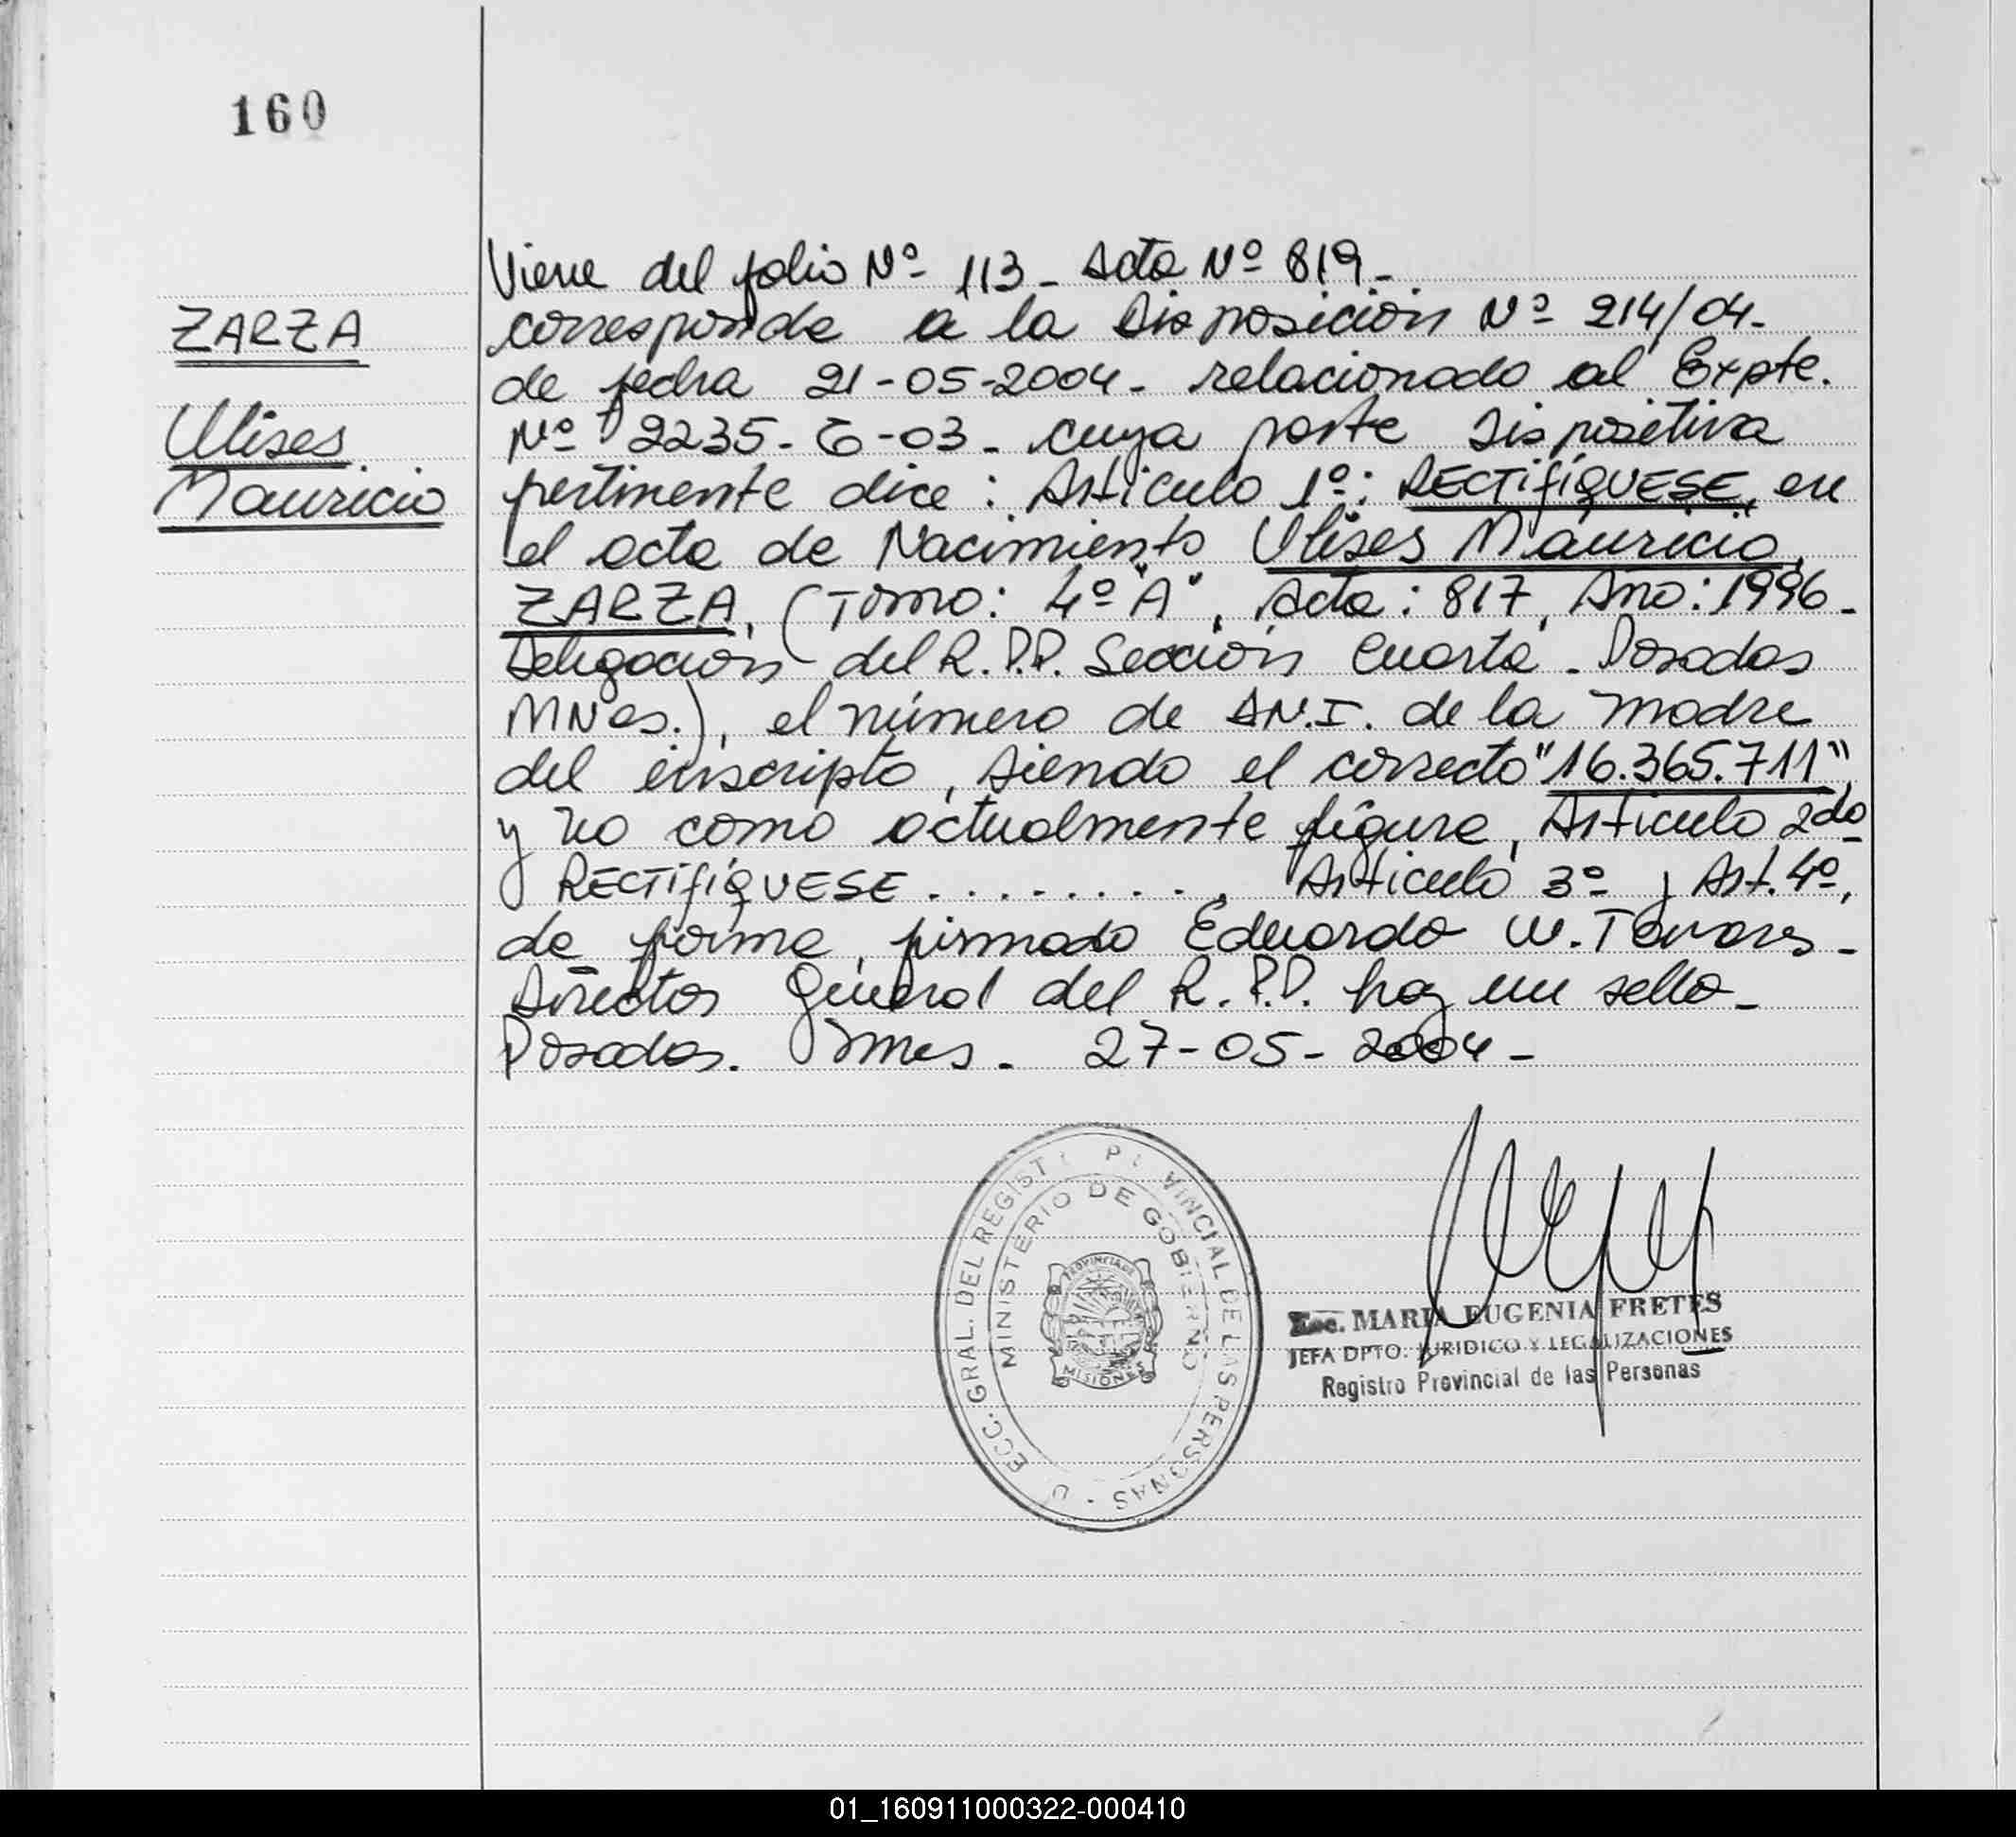 160
ZARZA
Ulises
Mauricio
Viene del folio Nº 113 - Acta Nº 819 -
corresponde a la Disposición Nº 214/04 -
de fecha 21-05-2004 - relacionado al Expte.
Nº 2235 - E - 03 - cuya parte dispositiva
pertinente dice: Artículo 1º: RECTIFÍQUESE, en
el acta de Nacimiento Ulises Mauricio
ZARZA, (Tomo: 4º "A", Acta: 817, Año: 1996 -
Delegación del R.P.P. Sección Cuarta - Posadas
MNes.), el número de D.N.I. de la madre
del inscripto, siendo el correcto "16.365.711"
y no como actualmente figura, Artículo 2do
RECTIFÍQUESE ........, Artículo 3º y Art. 4º,
de forma, firmado Eduardo W. Tavares -
Director General del R.P.P. hay un sello -
Posadas. Mnes - 27-05-2004 -
GRAL. DEL REGISTRO PROVINCIAL DE LAS PERSONAS -
MINISTERIO DE GOBIERNO
PROVINCIA DE
MISIONES
Esc. MARIA EUGENIA FRETES
JEFA DPTO. JURIDICO Y LEGALIZACIONES
Registro Provincial de las Personas
01_160911000322-000410